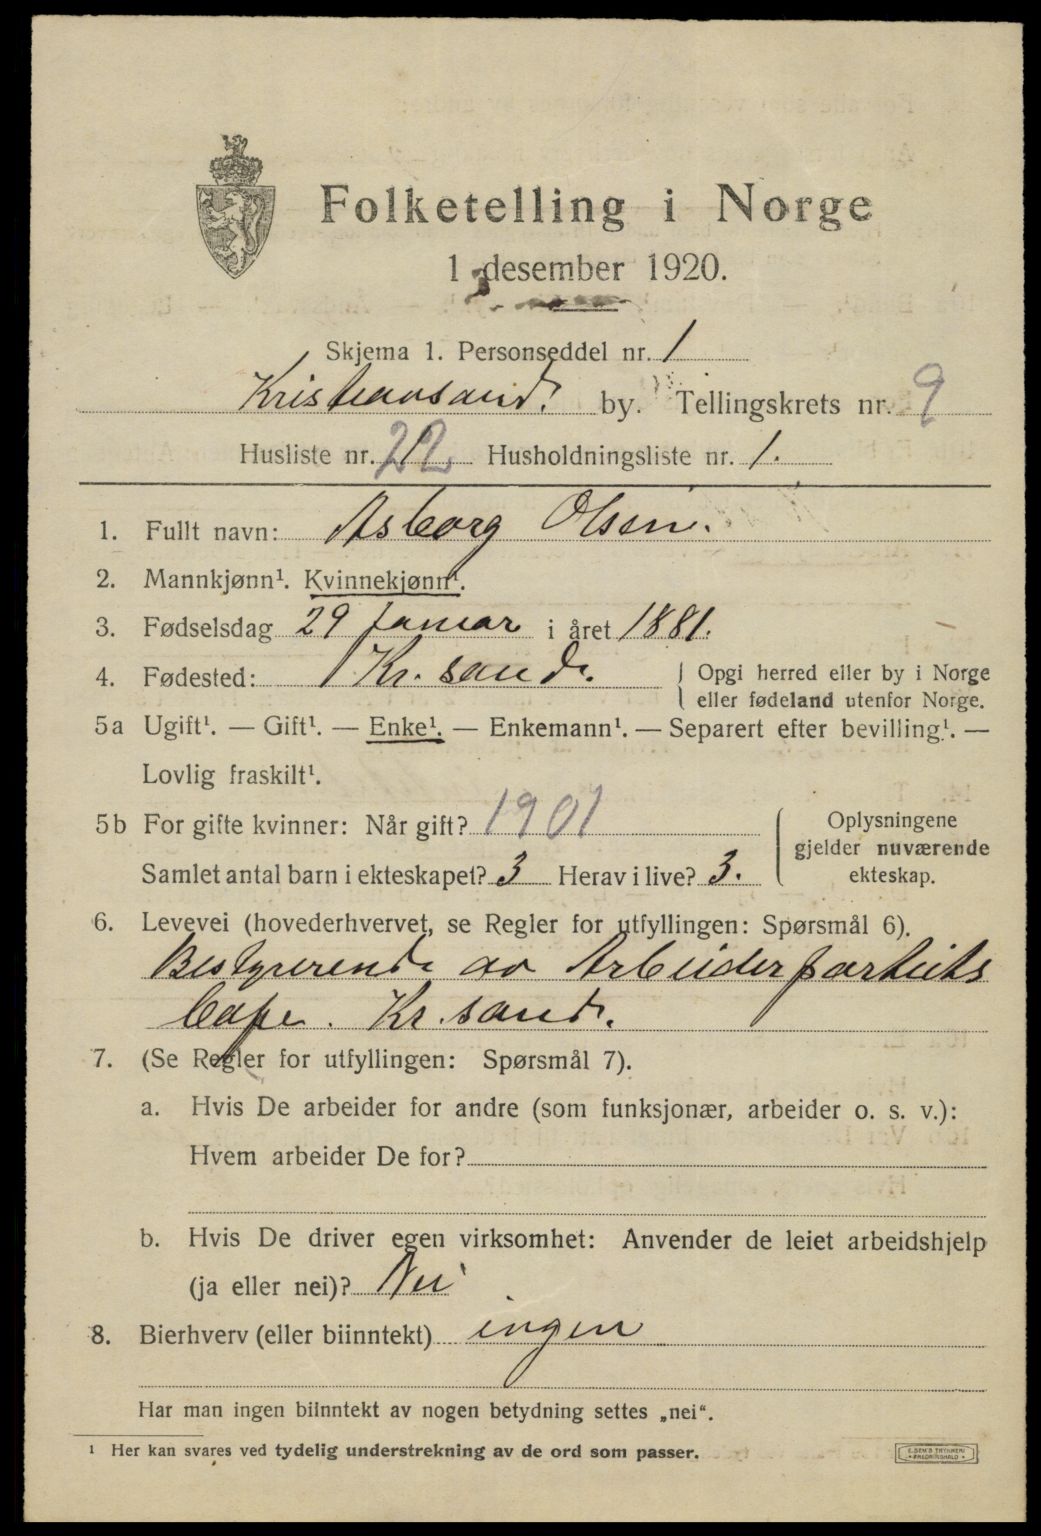 Folketelling i Norge
1 desember 1920.
Skjema 1. Personseddel nr. 1
Kristiansand. by. Tellingskrets nr. 9
Husliste nr. 22 Husholdningsliste nr. 1.
1. Fullt navn: Asborg Olsen.
2. Mannkjønn¹. Kvinnekjønn¹.
3. Fødselsdag 29 Januar i året 1881.
4. Fødested: Kr. sand. Opgi herred eller by i Norge
eller fødeland utenfor Norge.
5a Ugift¹. — Gift¹. — Enke¹. — Enkemann¹. — Separert efter bevilling¹. —
Lovlig fraskilt¹.
5b For gifte kvinner: Når gift? 1901
Samlet antal barn i ekteskapet? 3 Herav i live? 3.
Oplysningene
gjelder nuværende
ekteskap.
6. Levevei (hovederhvervet, se Regler for utfyllingen: Spørsmål 6).
Bestyrerende av Arbeiderpartiets
Cafe. Kr. sand.
7. (Se Regler for utfyllingen: Spørsmål 7).
a. Hvis De arbeider for andre (som funksjonær, arbeider o. s. v.):
Hvem arbeider De for?
b. Hvis De driver egen virksomhet: Anvender de leiet arbeidshjelp
(ja eller nei)? Nei
8. Bierhverv (eller biinntekt) ingen
Har man ingen biinntekt av nogen betydning settes „nei".
¹ Her kan svares ved tydelig understrekning av de ord som passer.